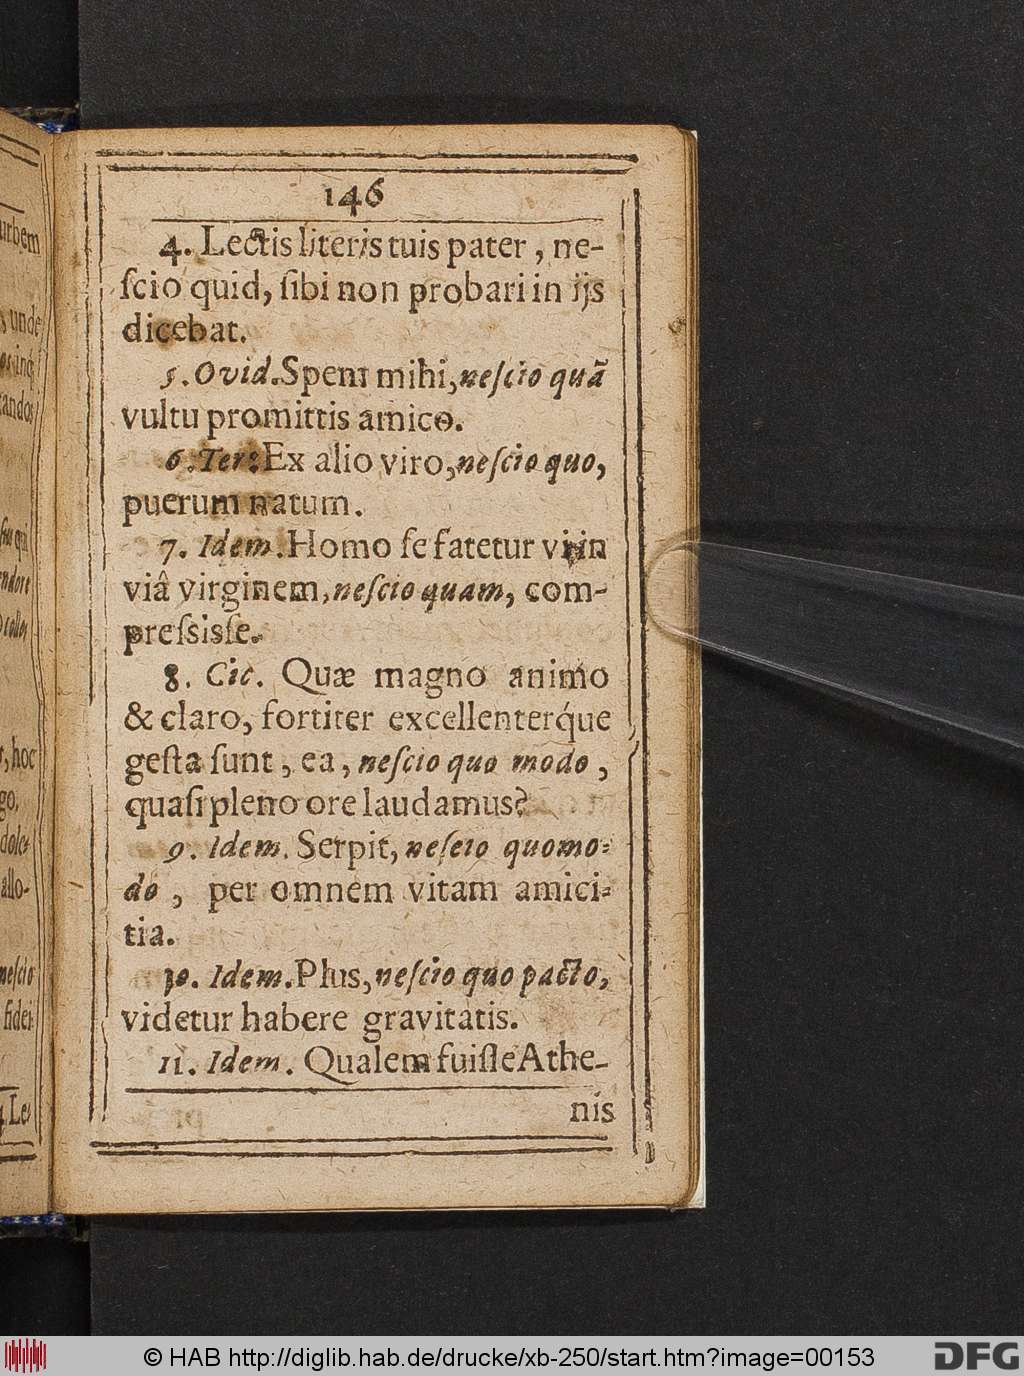 urbem
s unde
tandos
s, hoc
go,
dole-
allo-
nescio
fidei
4. Le-
146
4. Lectis literis tuis pater, ne-
ſcio quid, ſibi non probari in ijs
dicebat.
5. Ovid. Spem mihi, neſcio quã
vultu promittis amico.
6. Ter: Ex alio viro, neſcio quo,
puerum natum.
7. Idem. Homo ſe fatetur vi in
viâ virginem, neſcio quam, com-
preſsisſe.
8. Cic. Quæ magno animo
& claro, fortiter excellenterq́ue
geſta ſunt, ea, neſcio quo modo,
quaſi pleno ore laudamus?
9. Idem. Serpit, neſcio quomo-
do, per omnem vitam amici-
tia.
10. Idem. Plus, neſcio quo pacto,
videtur habere gravitatis.
11. Idem. Qualem fuiſſe Athe-
nis
© HAB http://diglib.hab.de/drucke/xb-250/start.htm?image=00153
DFG